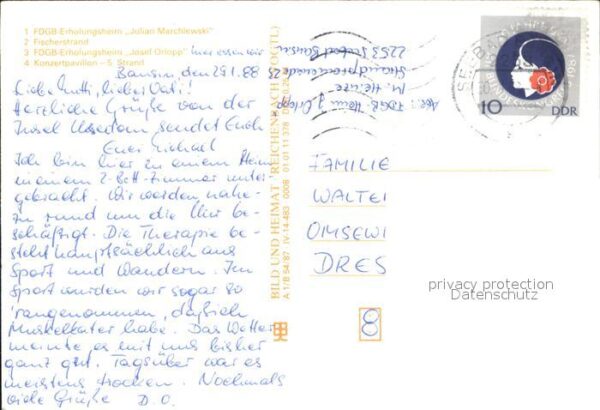 1 FDGB-Erholungsheim „Julian Marchlewski"
2 Fischerstrand
3 FDGB-Erholungsheim „Josef Orlopp"
4 Konzertpavillon - 5 Strand
Bansin, den 29.1.88
Liebe Mutti, lieber Vati!
Herzliche Grüße von der
Insel Usedom sendet Euch
Euer Michael
Ich bin hier in einem Heim
in einem 2-Bett-Zimmer unter-
gebracht. Wir werden nahe-
zu rund um die Uhr be-
schäftigt. Die Therapie be-
steht hauptsächlich aus
Sport und Wandern. Im
Sport wurden wir sogar so
rangenommen, daß ich
Muskelkater habe. Das Wetter
meinte es mit uns bisher
ganz gut. Tagsüber war es
meistens trocken. Nochmals
viele Grüße D. O.
BILD UND HEIMAT REICHENBACH (VOGTL)
A 1/B 54/87 IV-14-483 01 01 11 378
Abs.: FDGB-Heim J. Orlopp
M. Heintze
Strandpromenade 25
2253 Seebad Bansin
SEEBAD
10
DDR
FAMILIE
WALTE
OMSEWI
DRES
privacy protection
Datenschutz
8